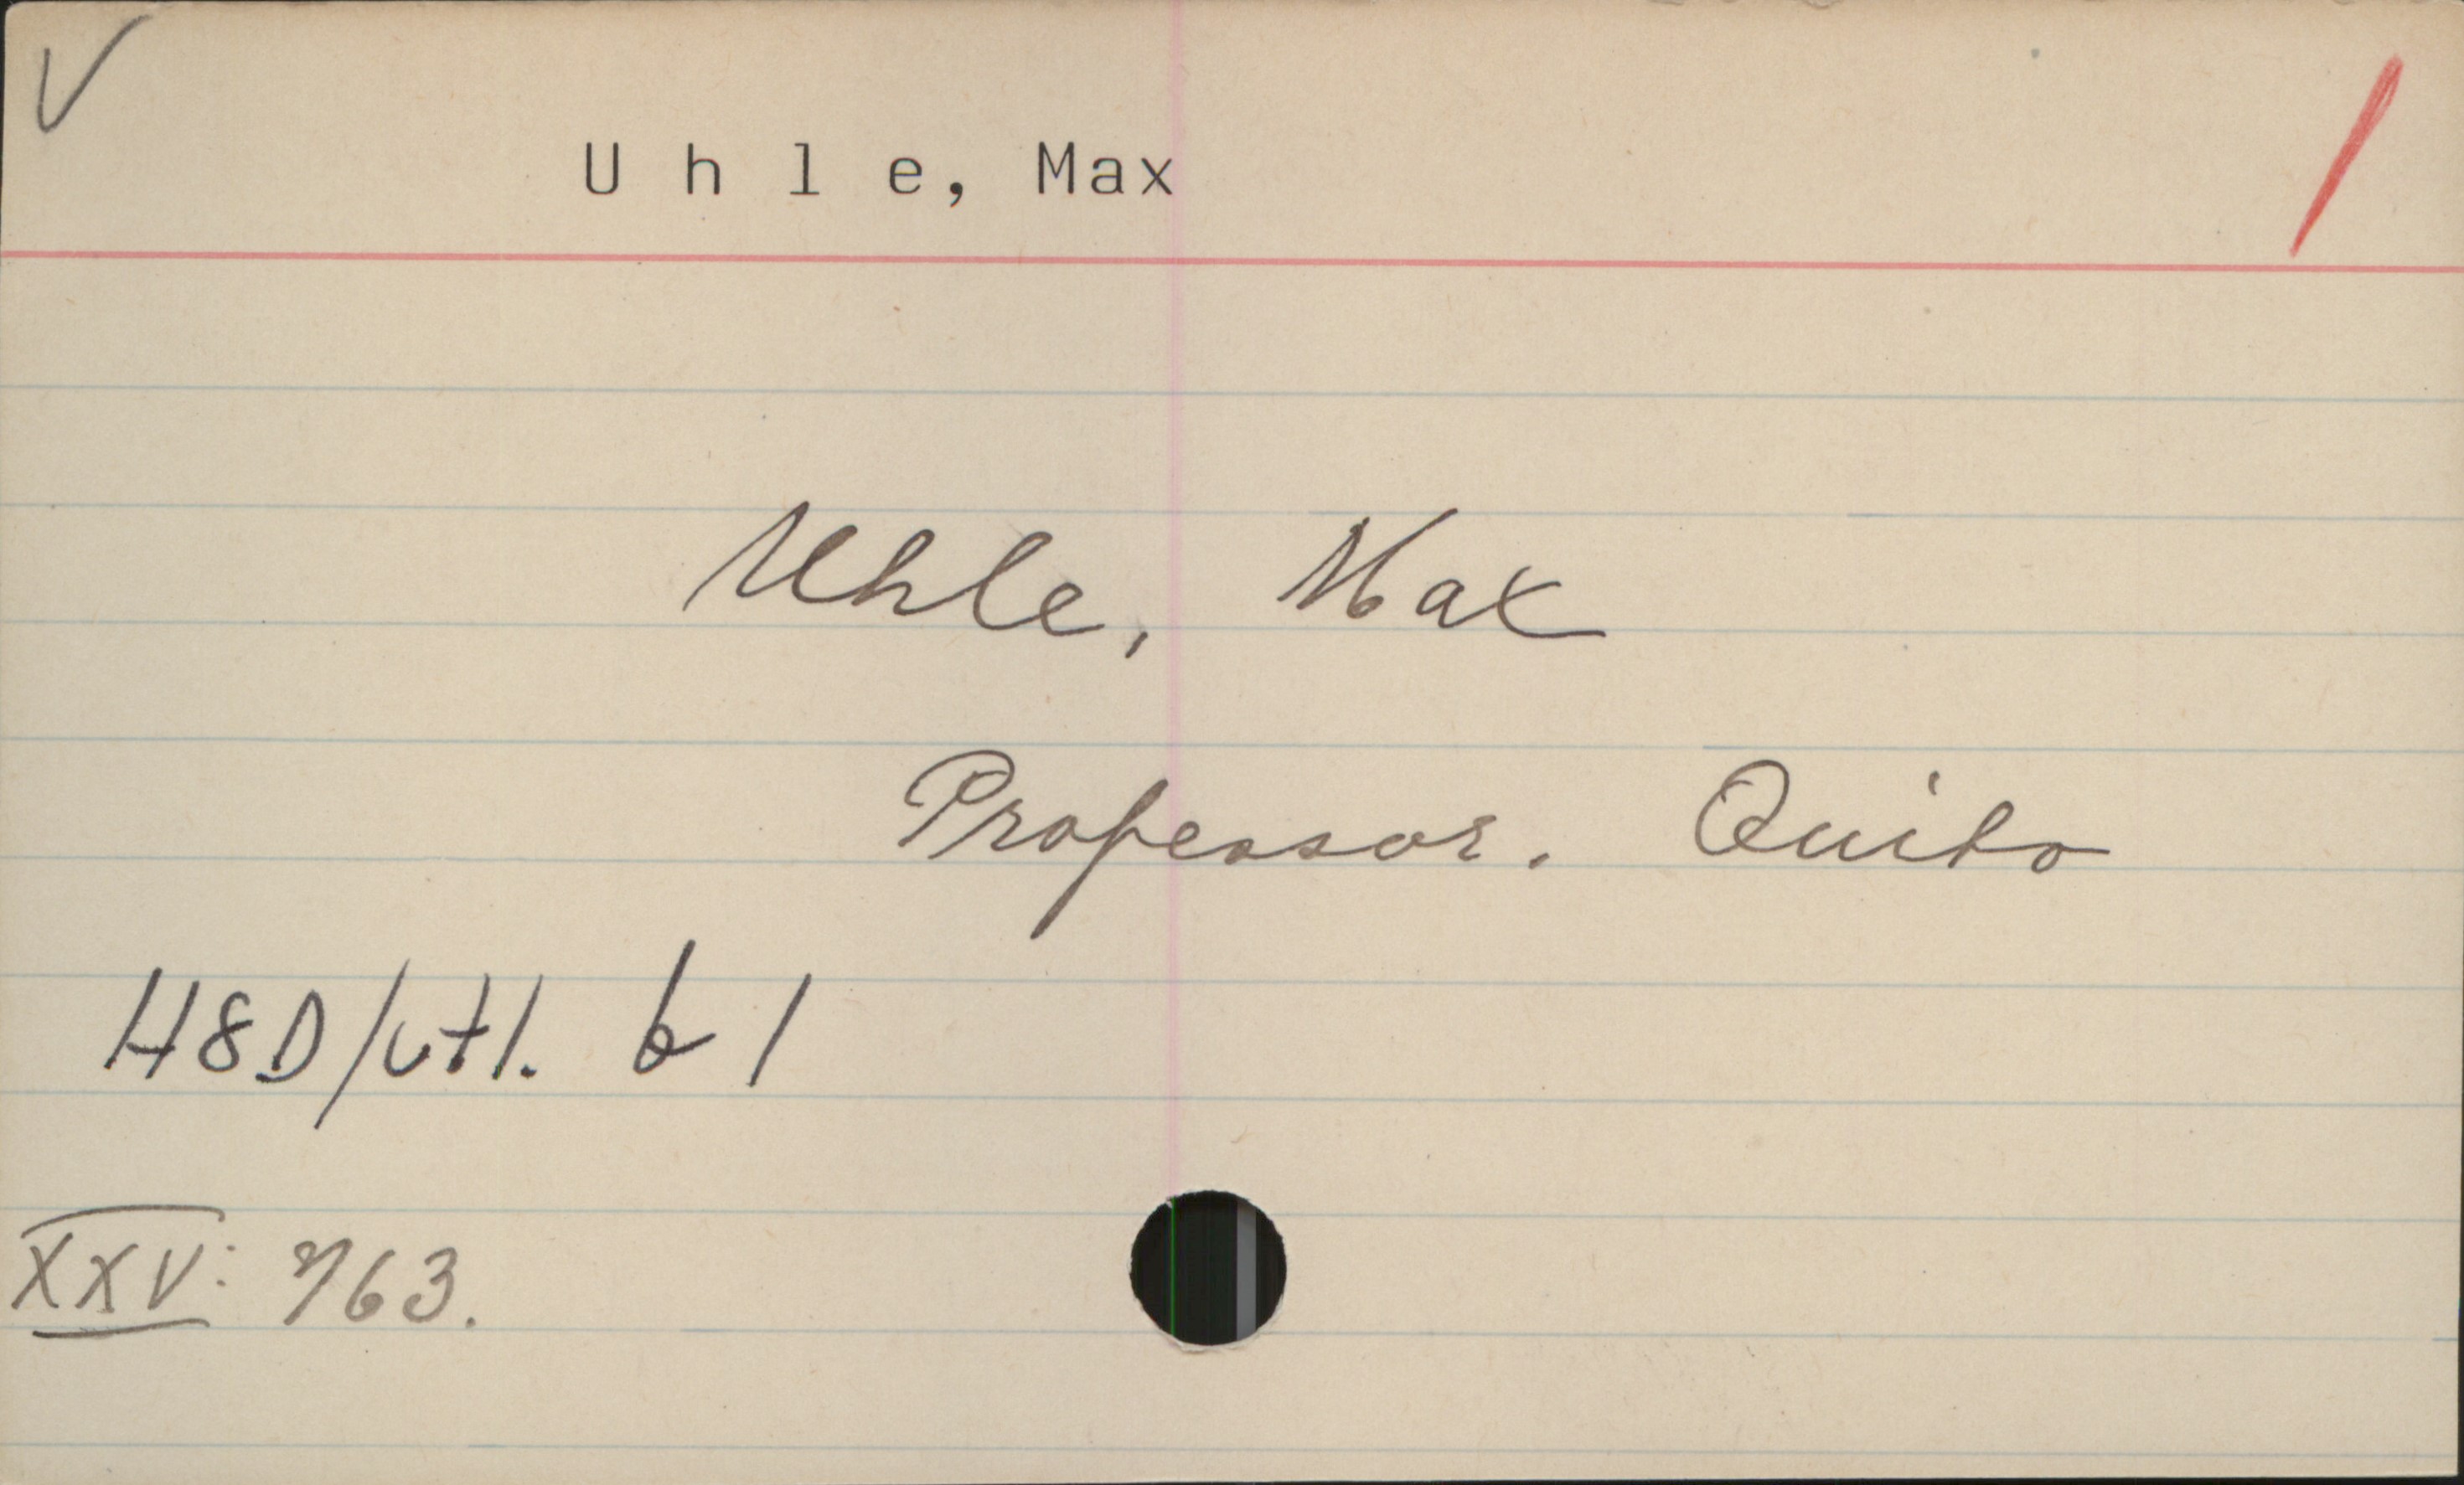 U h l e, Max
Uhle, Max
Professor. Quito
H8D/utl. b 1
XXV: 763.